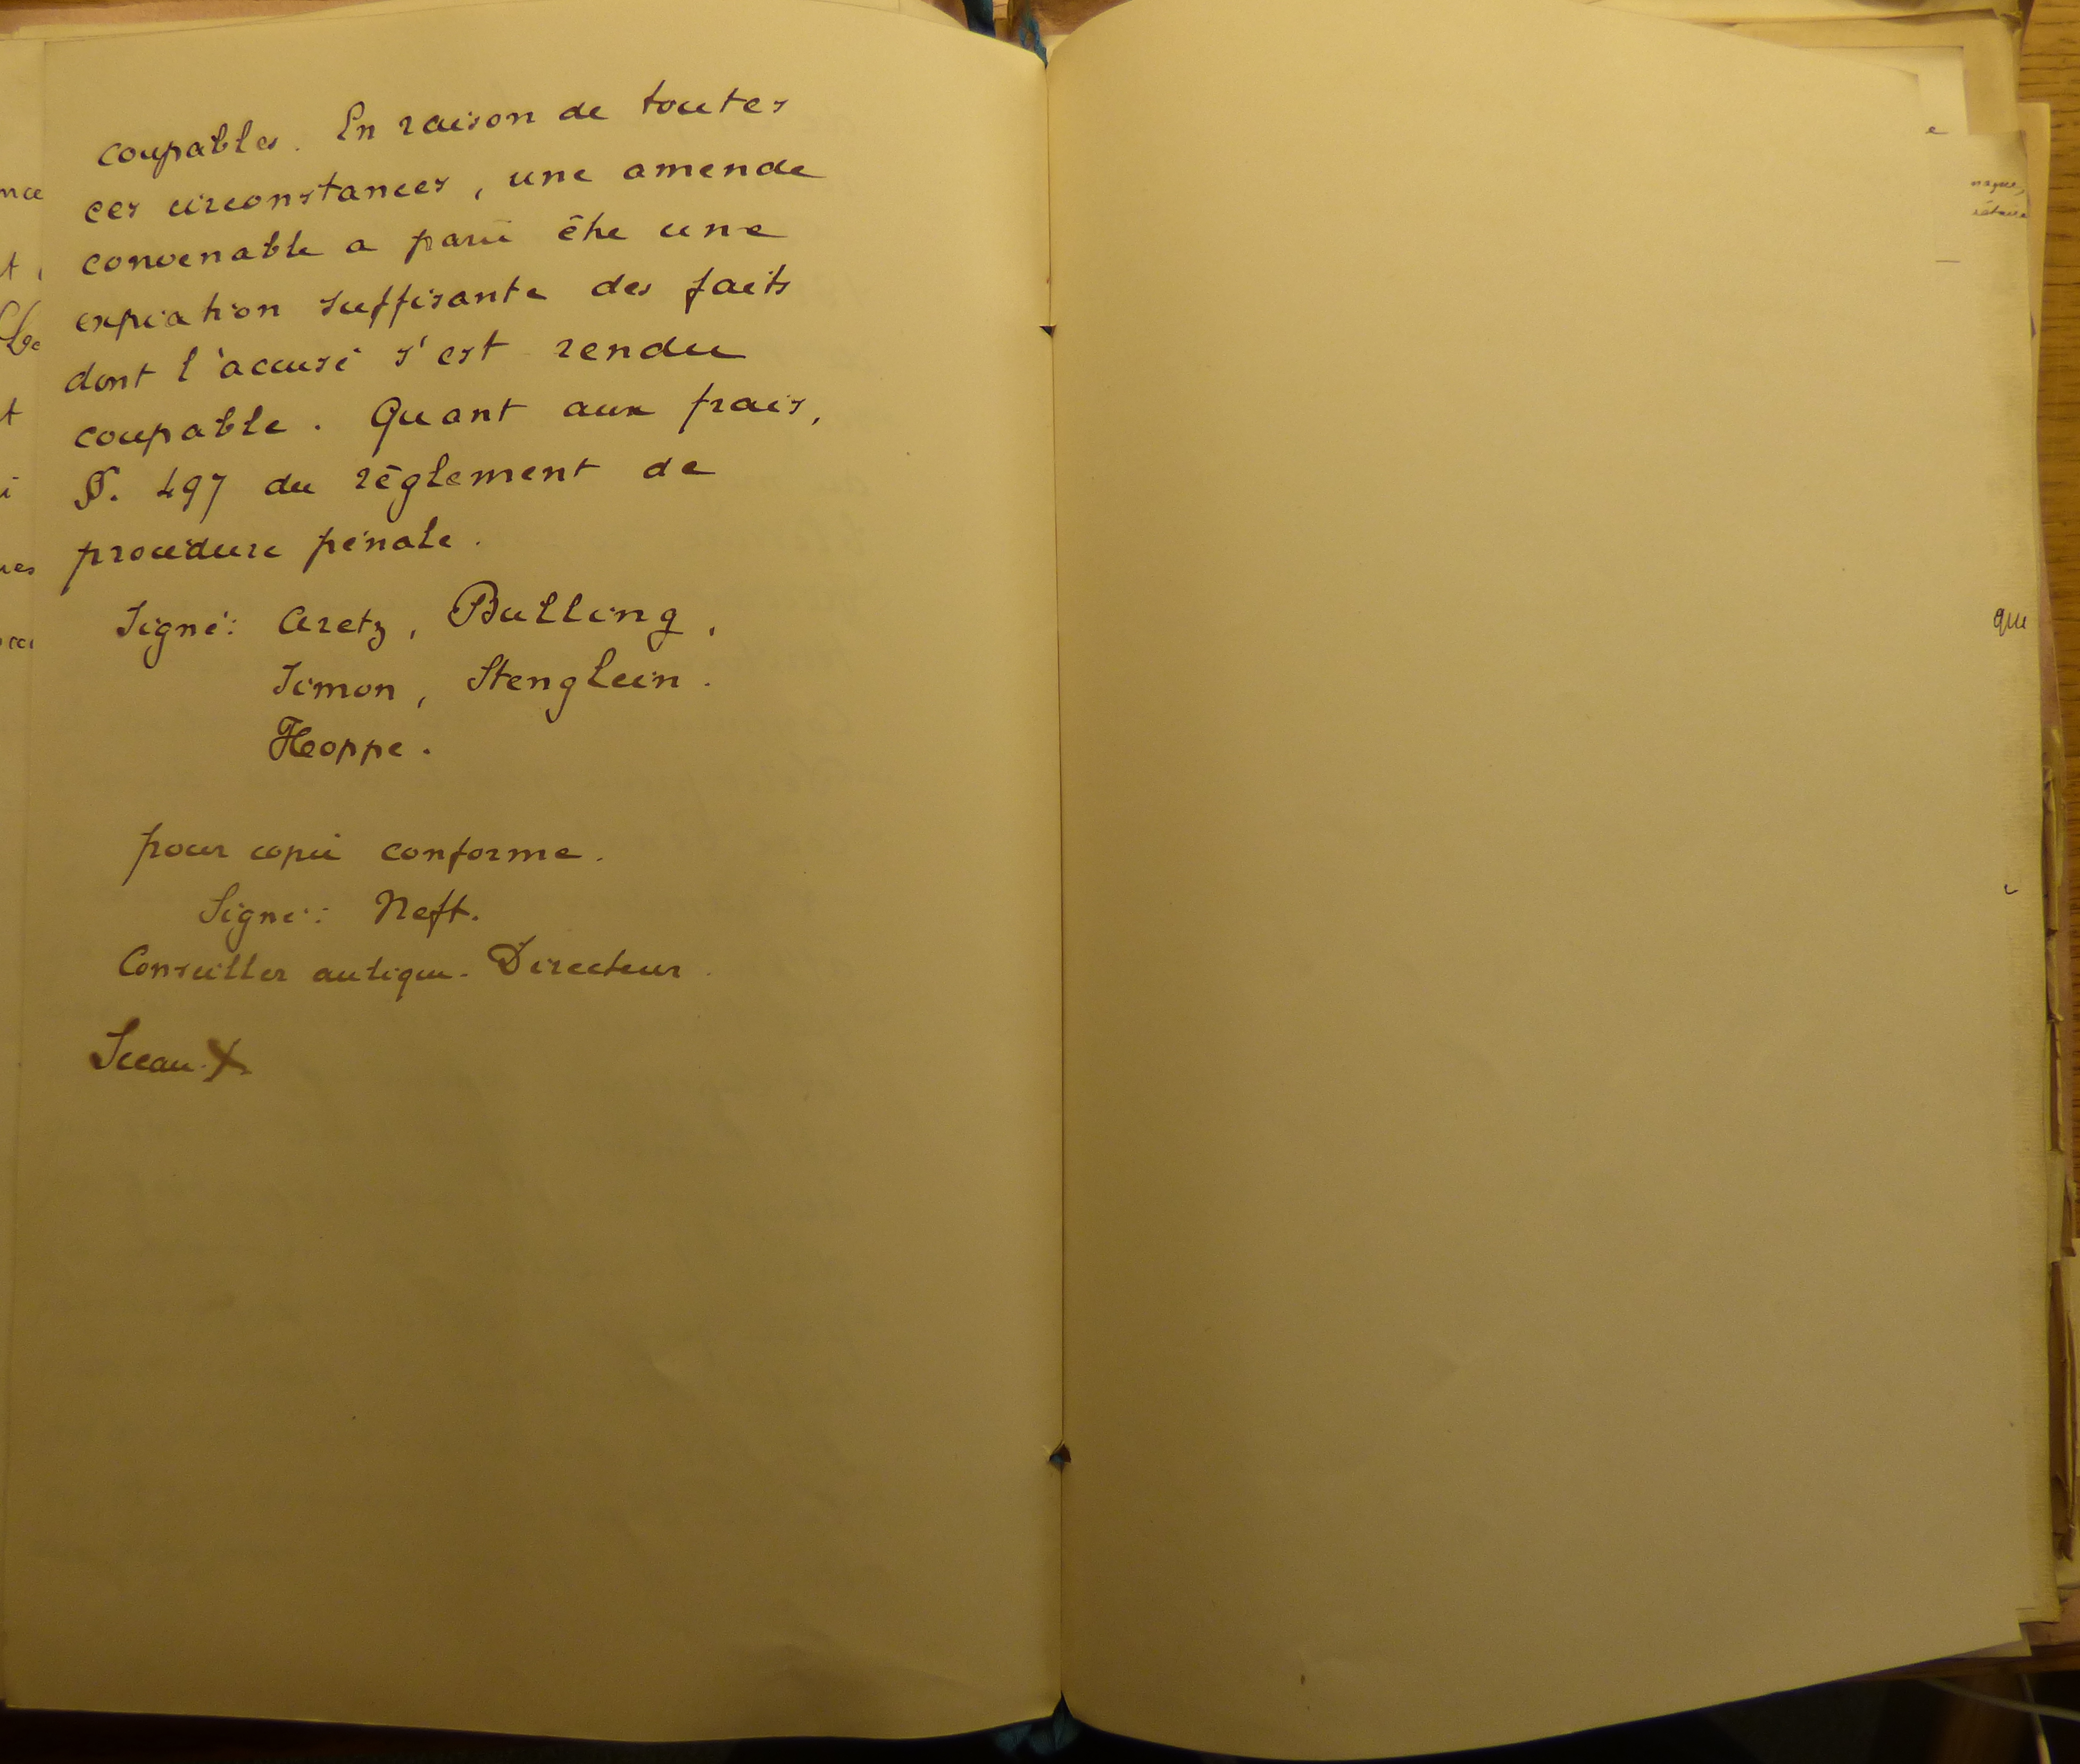 coupables. En raison de toutes
ces circonstances, une amende
convenable a paru être une
expiation suffisante des faits
dont l'accusé s'est rendu
coupable. Quant aux frais,
§. 497 du règlement de
procédure pénale.
Signé: Aretz, Bulling,
Simon, Stenglein.
Hoppe.
pour copie conforme.
Signé: Neft.
Conseiller aulique. Directeur.
Sceau
que